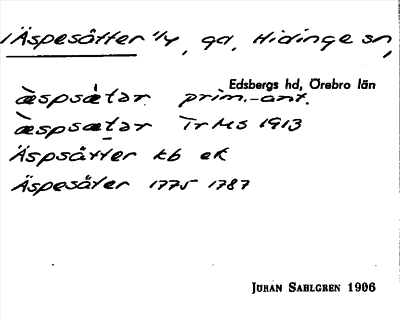 Äspesåtter 1/4, gd, Hidinge sn,
Edsbergs hd, Örebro län
æ̀spså̀tər. prim.-ant.
æ̀spsætər TrMs 1913
Äspsåtter kb ek
Äspesäter 1775 1787
JÖRAN SAHLGREN 1906